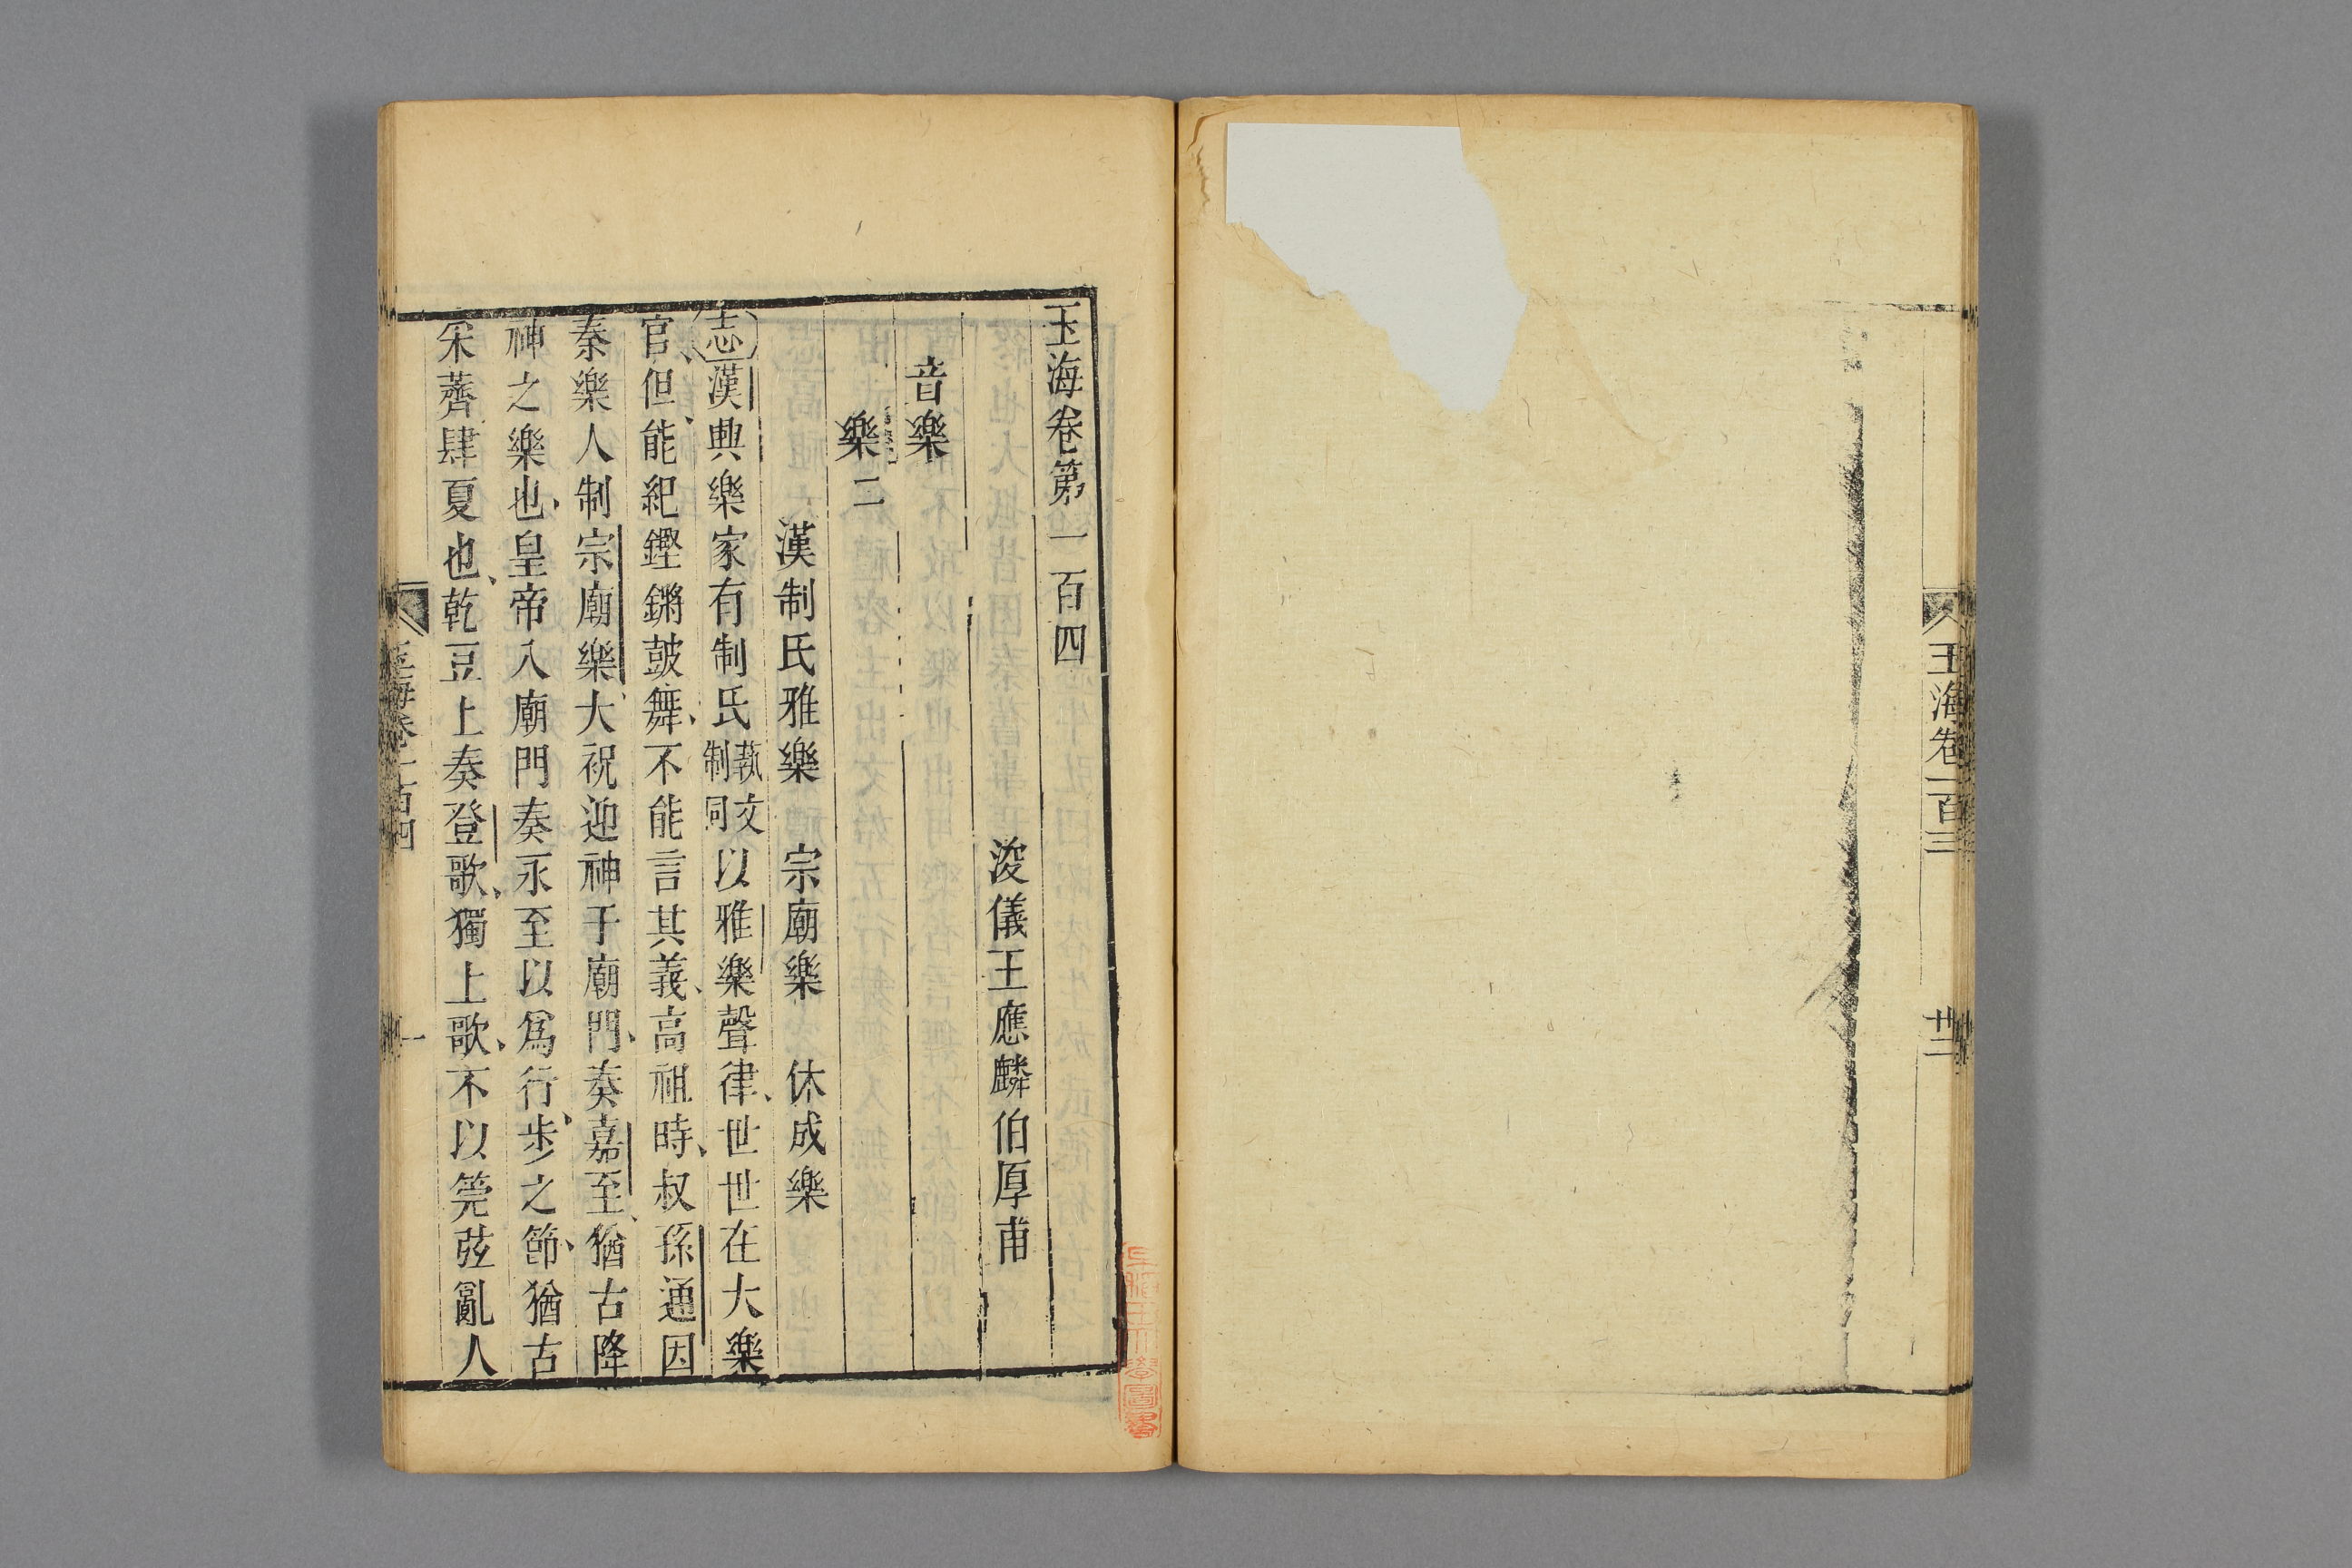 玉海卷一百三
廿二
玉海卷第一百四
浚儀王應麟伯厚甫
音樂
樂二
漢制氏雅樂　宗廟樂　休成樂
志漢興樂家有制氏藝文制同以雅樂聲律世世在大樂
官但能紀鏗鏘鼓舞不能言其義高祖時叔孫通因
秦樂人制宗廟樂大祝迎神于廟門奏嘉至猶古降
神之樂也皇帝入廟門奏永至以爲行步之節猶古
采薺肆夏也乾豆上奏登歌獨上歌不以筦弦亂人
玉海卷一百四
一